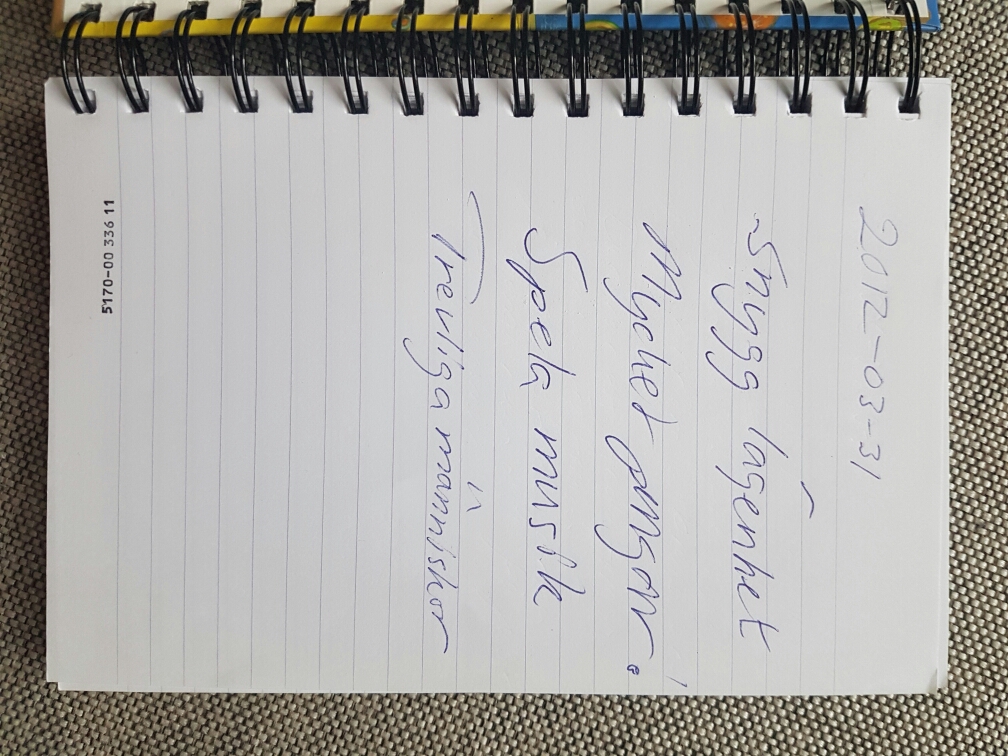 2012-03-31
Snygg lägenhet
Mycket
Spela musik
Trevliga människor
5170-00 336 11